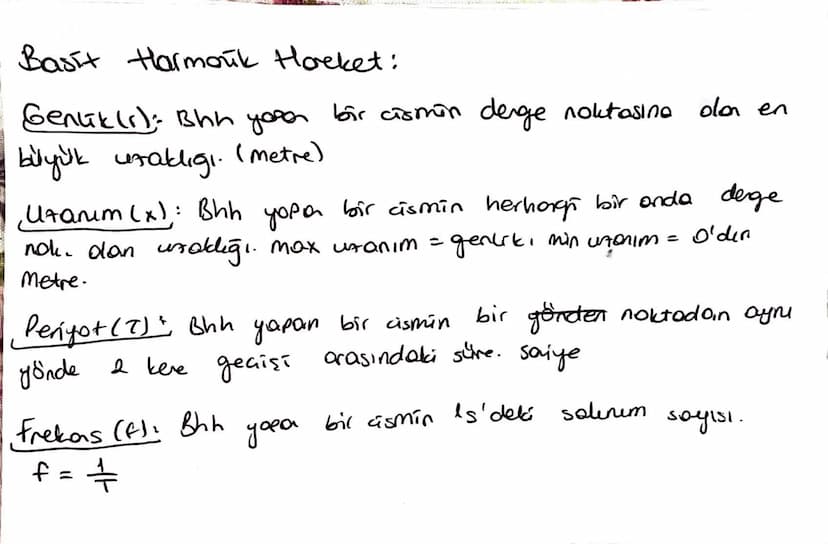 Basit Harmonik Hareket:
Genlik (r):- Bhh yapan bir cismin denge noktasına olan en
büyük uzaklığı. (metre)
Uzanım (x): Bhh yapan bir cismin herhangi bir anda denge
nok. olan uzaklığı. max uzanım = genlik, min uzanım = 0'dır
Metre.
Periyot (T): Bhh yapan bir cismin bir noktadan aynı
yönde 2 kere geçişi arasındaki süre. saniye
Frekans (f): Bhh yapan bir cismin 1s'deki salınım sayısı.
f = 1/T